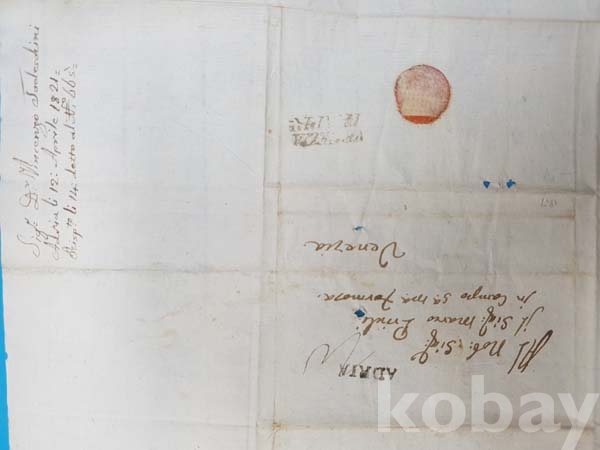 Sig.r D.r Vincenzo
Adria li 12: Aprile 1821:
Risp.to li 14 detto al N.o 665:
ADRIA
Al Nob: Sig.r
Il Sig.r Marco Priuli
in Campo S.a M.a Formosa
Venezia
kobay